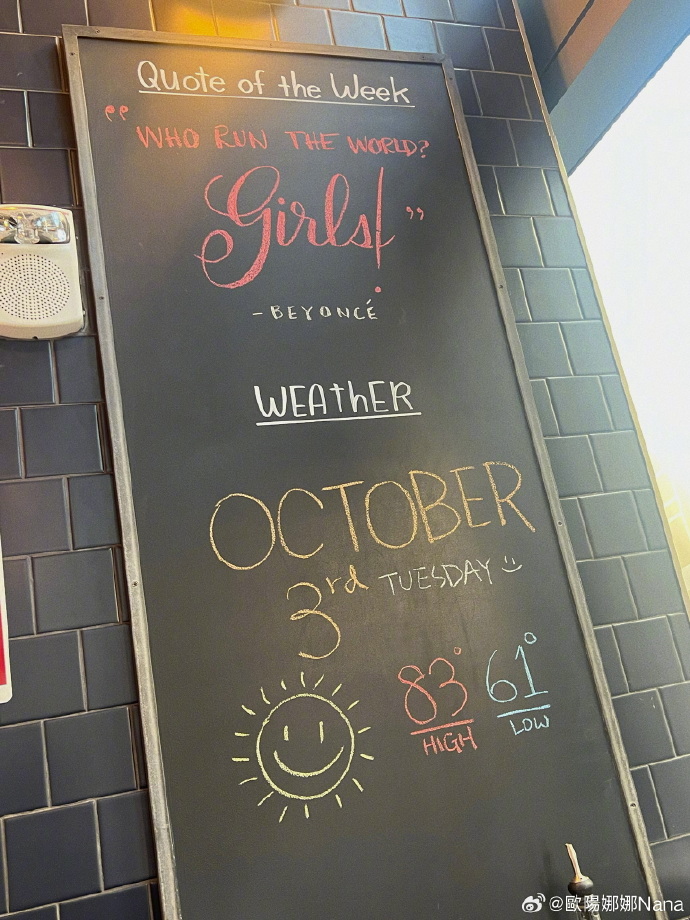 Quote of the Week
"WHO RUN THE WORLD?
Girls!"
- BEYONCÉ
WEAthER
OCTOBER
3rd TUESDAY
83° 61°
HIGH LOW
@歐陽娜娜Nana